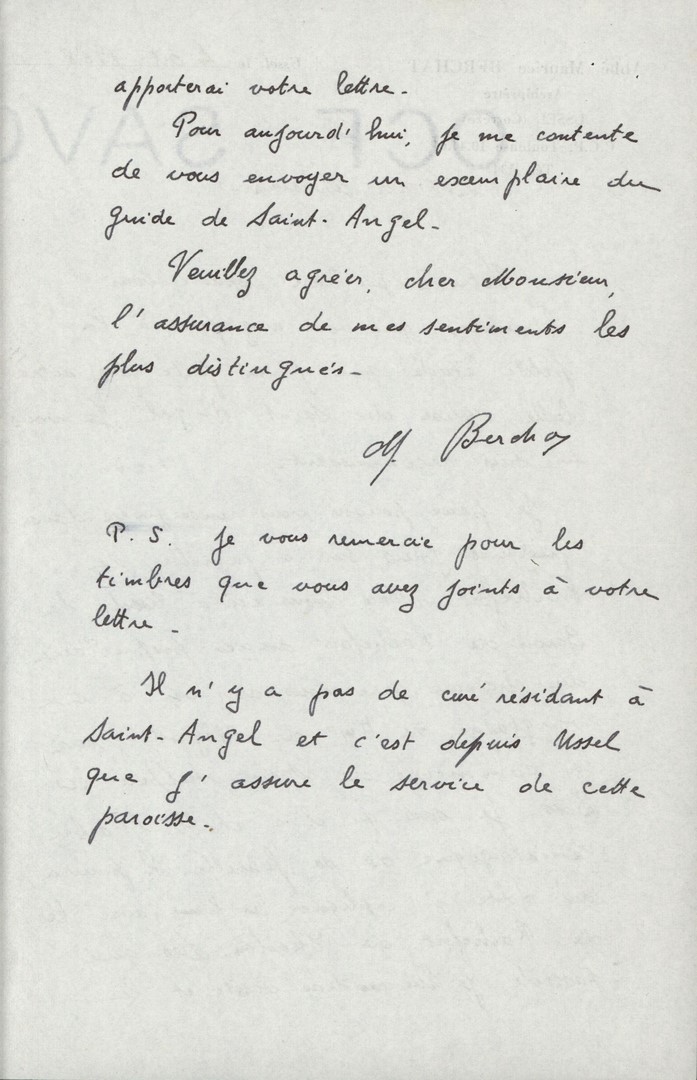 apporterai votre lettre.
Pour aujourd'hui, je me contente
de vous envoyer un exemplaire du
guide de Saint-Angel.
Veuillez agréer, cher Monsieur,
l'assurance de mes sentiments les
plus distingués.
M Berchat
P.S. je vous remercie pour les
timbres que vous avez joints à votre
lettre.
Il n'y a pas de curé résidant à
Saint-Angel et c'est depuis Ussel
que j'assure le service de cette
paroisse.